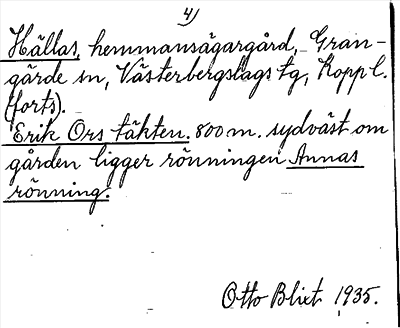 4)
Hällas, hemmansägargård, Gran-
gärde sn, Västerbergslags tg, Kopp l.
(forts).
Erik Ors täkten. 800 m. sydväst om
gården ligger rönningen Annas
rönning.
Otto Blixt 1935.